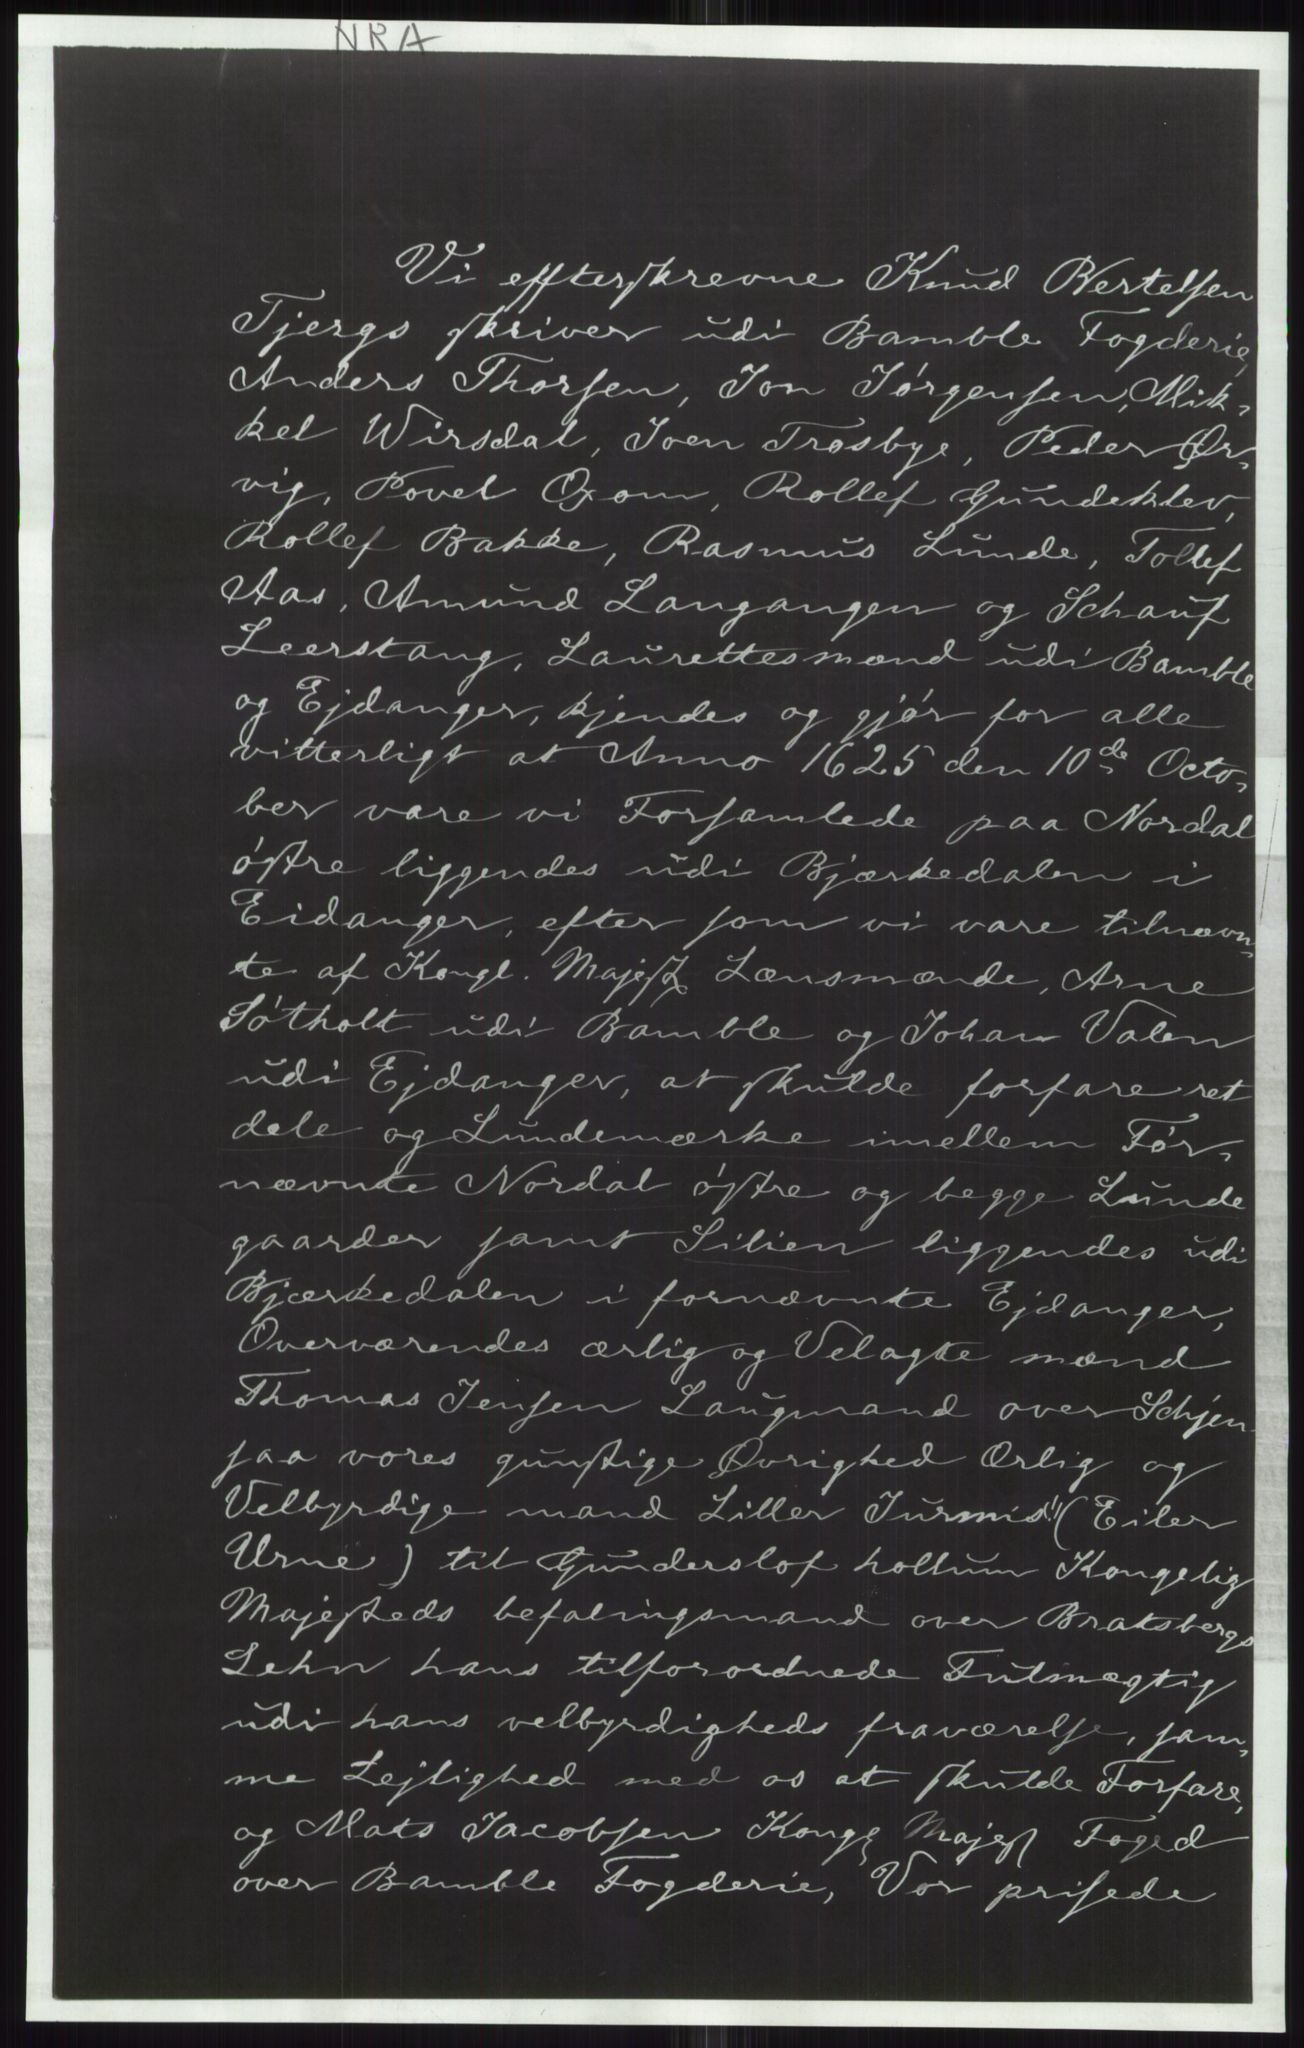 NRA
Vi effterskrevne Knud Bertelsen
Tjergs skriver udi Bamble Fogderie,
Anders Thorsen, Jon Jørgensen, Mik-
kel Wirsdal, Joen Trosbye, Peder Ør-
vig, Povel Oxom, Rollef Gundeklev,
Rollef Bakke, Rasmus Lunde, Tollef
Aas, Amund Langangen og Schauf
Leerstang, Laurettesmænd udi Bamble
og Ejdanger, kjendes og gjør for alle
vitterligt at Anno 1625 den 10de Octo-
ber vare vi Forsamlede paa Nordal
østre liggendes udi Bjærkedalen i
Eidanger, efter som vi vare tilnævn-
te af Kongl. Majest Lænsmænde, Arne
Søtholt udi Bamble og Johan Valen
udi Ejdanger, at skulde forfare ret
dele og Lundemærke imellem Før-
nævnte Nordal østre og begge Lunde
gaarder samt Silien liggendes udi
Bjærkedalen i fornævnte Ejdanger,
Overværendes ærlig og Velagte mænd
Thomas Jensen Laugmand over Schjen
saa vores gunstige Øvrighed Ærlig og
Velbyrdige mand Liller Jurmis" (Eiler
Urne) til Gunderslof hollum Kongelig
Majesteds befalingsmand over Bratsbergs
Lehn hans tilforordnede Futmægtig
udi hans velbyrdigheds fraværelse, sam-
me Lejlighed med os at skulde Forfare,
og Mats Jacobsen Kongl Majest Foged
over Bamble Fogderie, Vor prisede